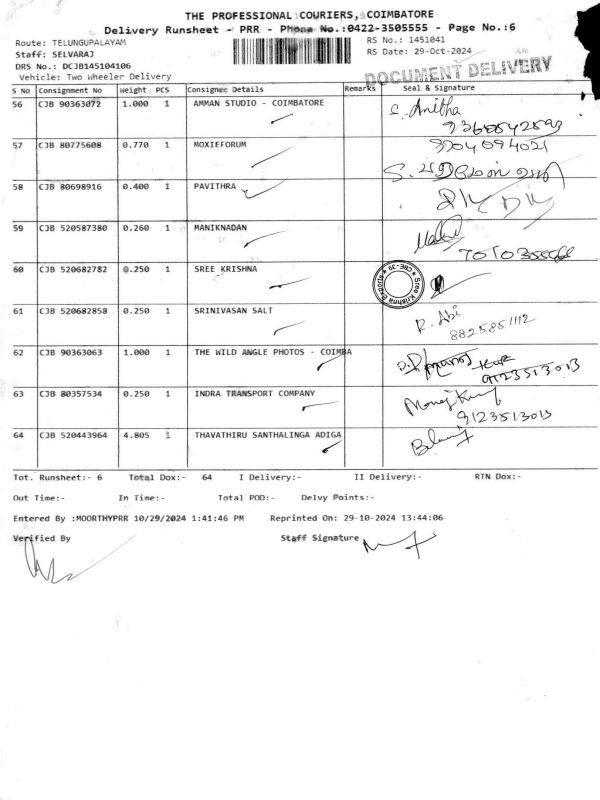 THE PROFESSIONAL COURIERS, COIMBATORE
Delivery Runsheet - PRR - Phone No.:0422-3505555 - Page No.:6
Route: TELUNGUPALAYAM RS No.: 1451041
Staff: SELVARAJ RS Date: 29-Oct-2024
DRS No.: DCJB145104106
Vehicle: Two Wheeler Delivery DOCUMENT DELIVERY
S No Consignment No Weight PCS Consignee Details Remarks Seal & Signature
56 CJB 90363072 1.000 1 AMMAN STUDIO - COIMBATORE S. Anitha
57 CJB 80775608 0.770 1 MOXIEFORUM
58 CJB 80698916 0.400 1 PAVITHRA
59 CJB 520587380 0.260 1 MANIKNADAN
60 CJB 520682782 0.250 1 SREE KRISHNA Sree Krishna Exports CBE-39
61 CJB 520682858 0.250 1 SRINIVASAN SALT R. Abi
8825851112
62 CJB 90363063 1.000 1 THE WILD ANGLE PHOTOS - COIMBA
9123513013
63 CJB 80357534 0.250 1 INDRA TRANSPORT COMPANY
9123513013
64 CJB 520443964 4.805 1 THAVATHIRU SANTHALINGA ADIGA
Tot. Runsheet:- 6 Total Dox:- 64 I Delivery:- II Delivery:- RTN Dox:-
Out Time:- In Time:- Total POD:- Delvy Points:-
Entered By :MOORTHYPRR 10/29/2024 1:41:46 PM Reprinted On: 29-10-2024 13:44:06
Verified By Staff Signature